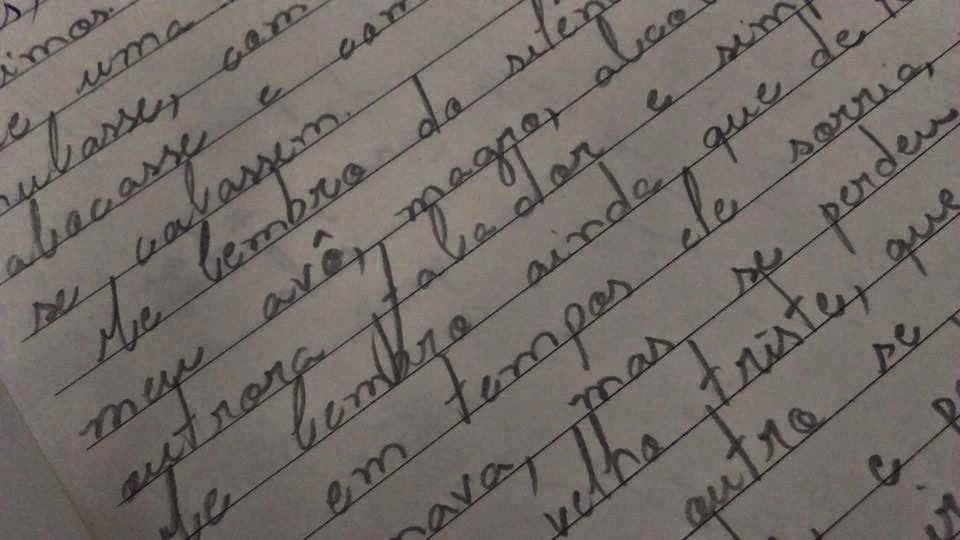 imos.
e uma
ulasse, com
alacasse e com
se calassem.
Me lembro do silên
meu avô, magro, alco
outrora falador e simp
Me lembro ainda que de
em tempos ele sorria,
mas se perdeu
velho triste, que
outro se
e